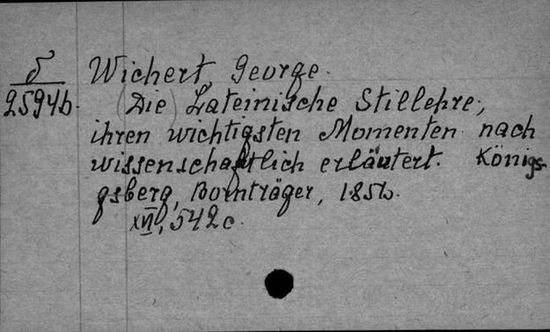 δ
2594b.
Wichert, George.
(Die) Lateinische Stillehre,
ihren wichtigsten Momenten nach
wissenschaftlich erläutert. Königs-
gsberg, Bornträger, 1856.
XII, 542 c.